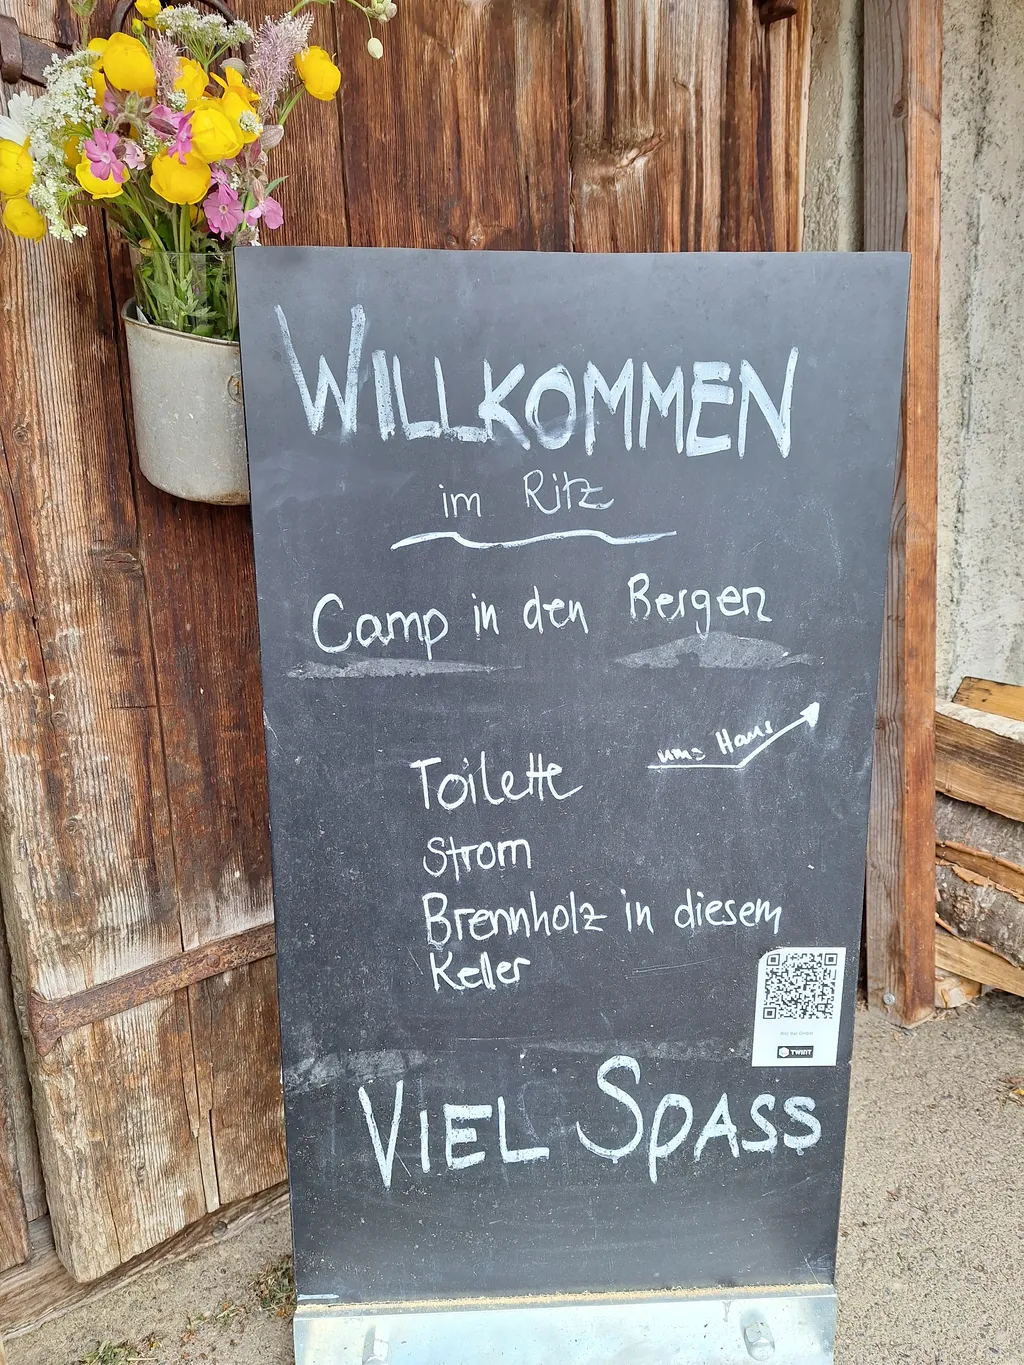 WILLKOMMEN
im Ritz
Camp in den Bergen
ums Haus
Toilette
Strom
Brennholz in diesem
Keller
TWINT
VIEL SPASS